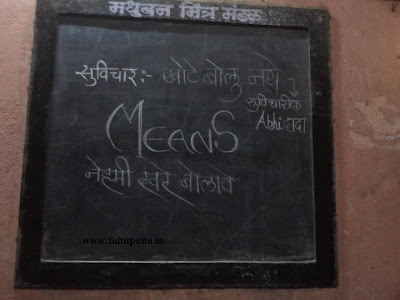 मधुबन मित्र मंडळ
सुविचार:- खोटे बोलु नये
सुविचारी
Abhi दादा
MEANS
नेहमी खर बोलाव
www.faltupana.in